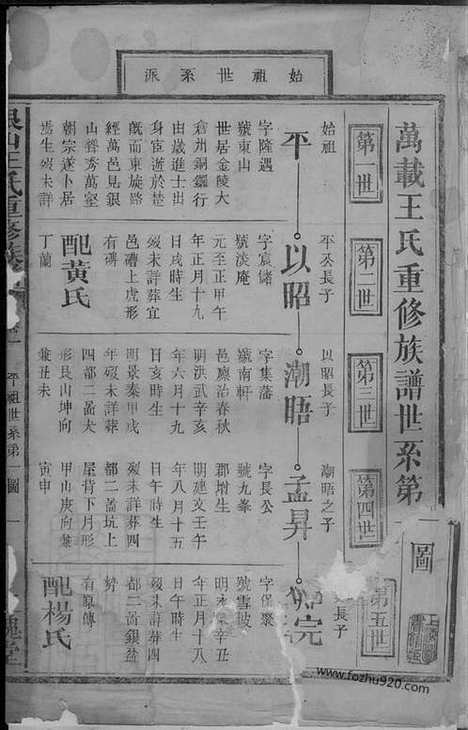 始祖世系派
萬載王氏重修族譜世系第
一圖
第一世
第二世
第三世
第四世
第五世
始祖
平
字隆遇
號東山
世居金陵大
由歲進士出
身宦遊於楚
既而東旋路
經萬邑見銀
山聳秀萬壑
朝宗遂卜居
焉生歿未詳
平公長子
以昭
字宸儲
號淡庵
元至正甲午
年正月十九
日戌時生
歿未詳葬宜
邑礱上虎形
有碑
配黃氏
丁蘭
以昭長子
潮晤
字集藩
號南軒
邑廩治春秋
明洪武辛亥
年六月十九
日亥時生
明景泰甲戌
年歿未詳葬
四都二啚大
形艮山坤向
兼丑未
潮晤之子
孟昇
字長公
號九峯
郡增生
明建文壬午
年八月十五
日午時生
歿未詳葬四
都二啚坑上
屋背下月形
甲山庚向兼
寅申
長子
完
號雪波
年正月十八
日午時生
歿未詳葬四
都二啚銀盆
勢
配楊氏
王氏重修族
平祖世系第一圖
www.fozhu920.com